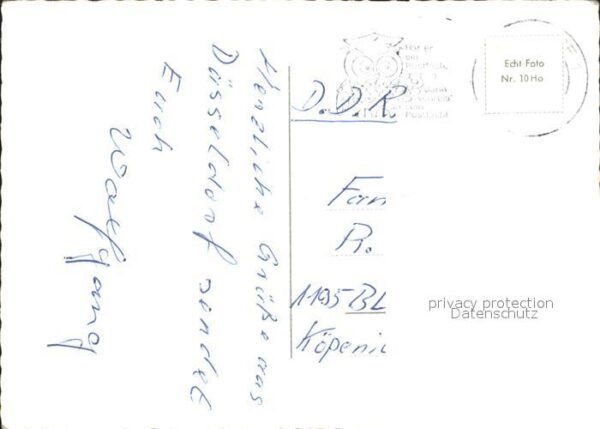 Herzliche Grüße aus
Düsseldorf sendet
Euch
Wolfgang
Echt Foto
Nr. 10 Ho
D.D.R.
Fam
R.
1195 BL
Köpenic
privacy protection
Datenschutz